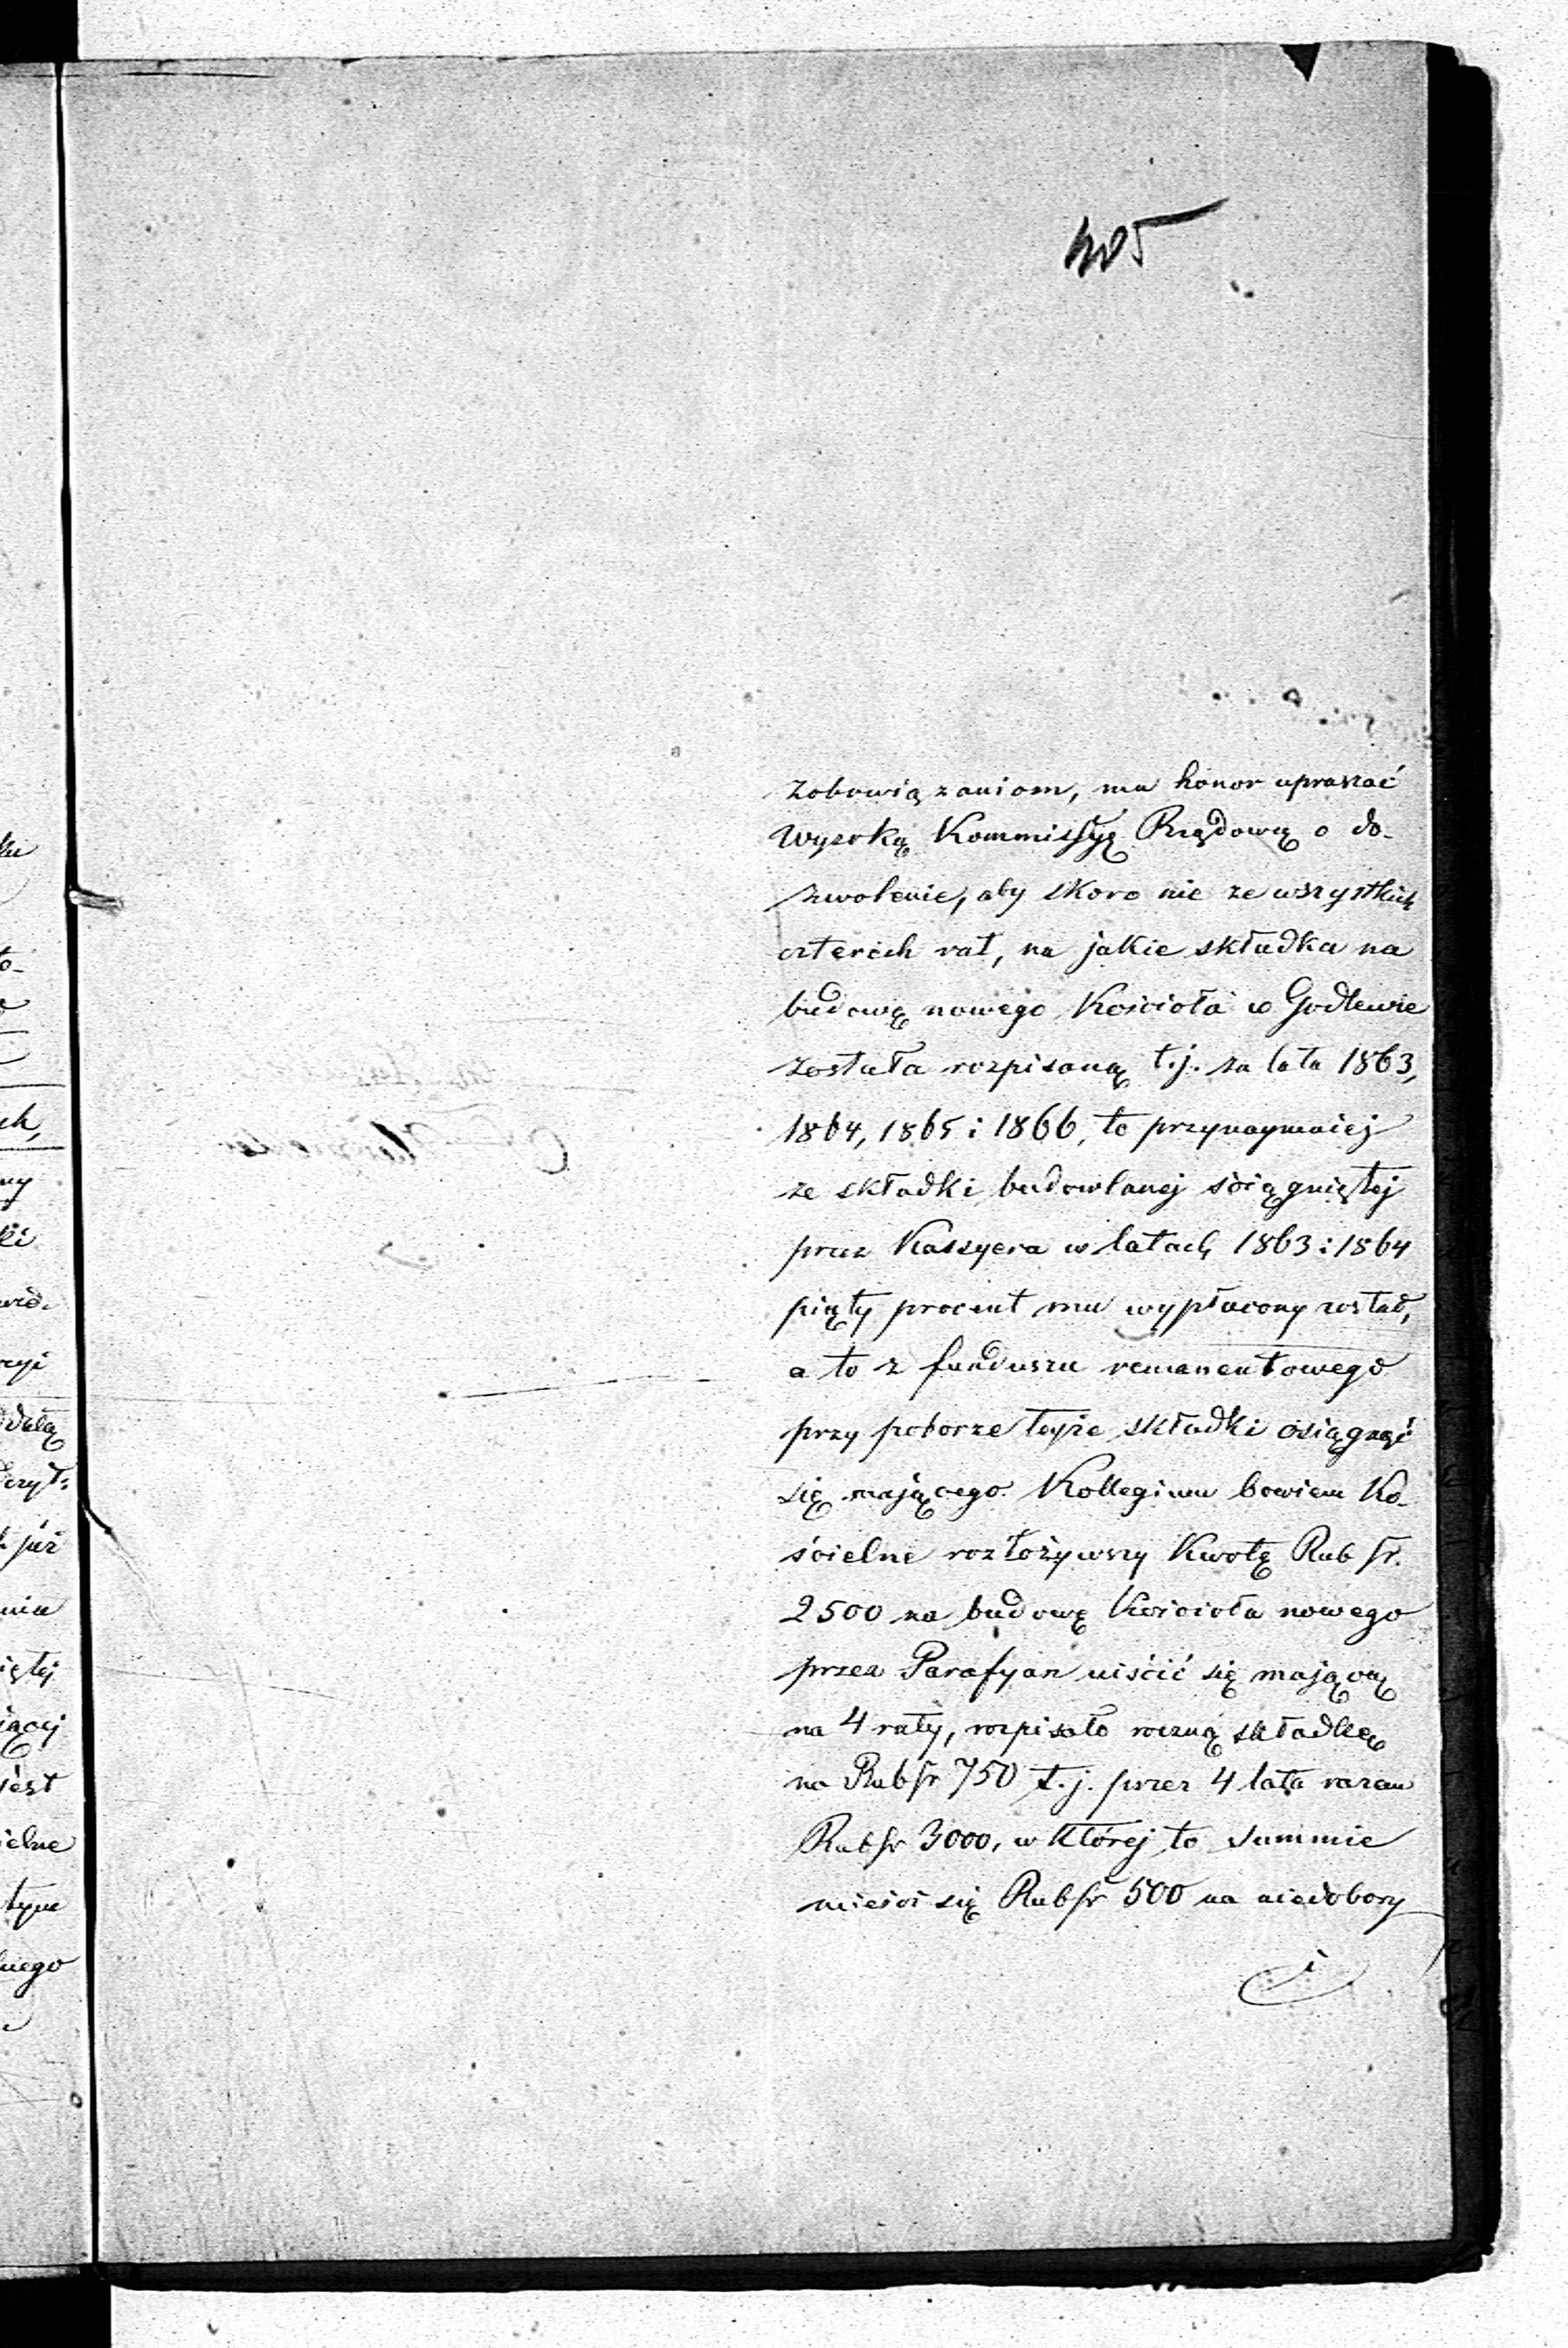 405
zobowiązaniom, ma honor upraszać
Wysoką Kommissyę Rządową o do-
zwolenie, aby skoro nie ze wszystkich
czterech rat, na jakie składka na
budowę nowego Kościoła w Godlewie
została rozpisaną t.j. za lata 1863,
1864, 1865 i 1866, to przynaymniej
ze składki budowlanej ściągniętej
przez Kassyera w latach 1863 i 1864
piąty procent mu wypłacony został,
a to z funduszu remanentowego
przy poborze tejże składki osiągnąć
się mającego. Kollegium bowiem Ko-
ścielne rozłożywszy Kwotę Rub sr.
2500 na budowę Kościoła nowego
przez Parafyan uiścić się mającą
na 4 raty, rozpisało roczną składkę
na Rub sr 750 t.j. przez 4 lata razem
Rub sr 3000, w której to summie
mieści się Rub sr 500 na niedobory
i